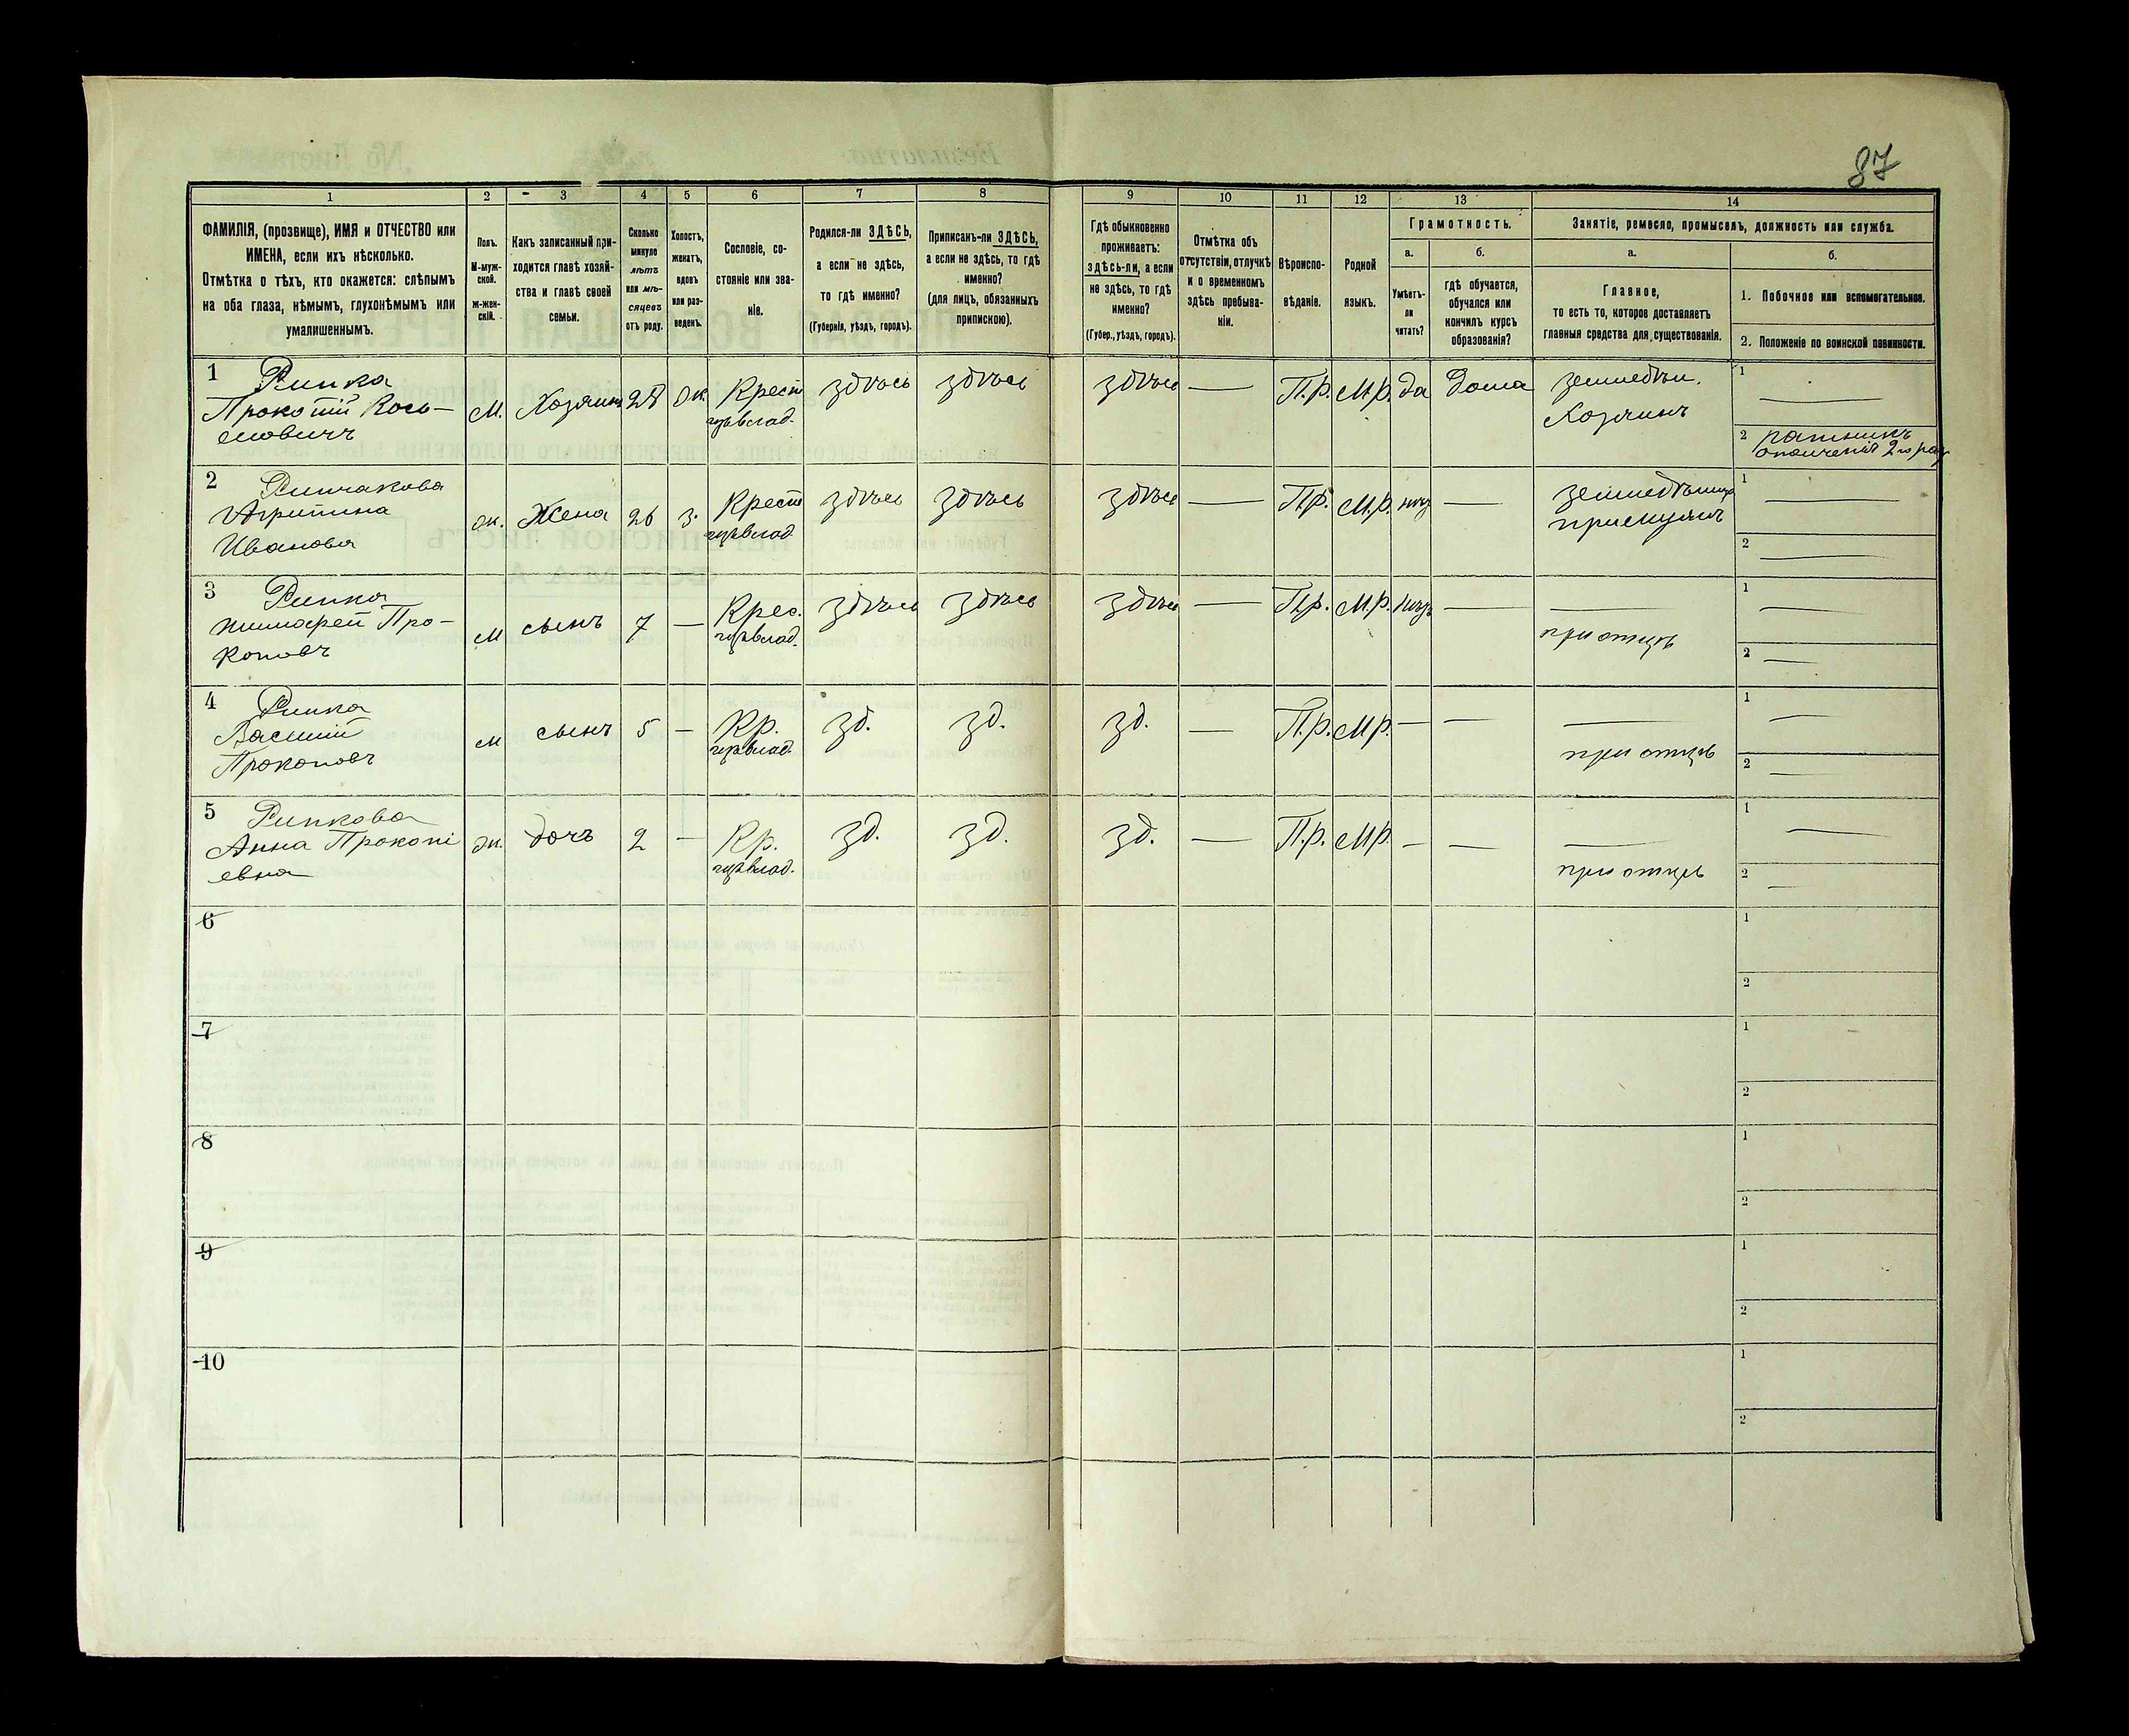 87
1 2 3 4 5 6 7 8 9 10 11 12 13 14
ФАМИЛІЯ, (прозвище), ИМЯ и ОТЧЕСТВО или
ИМЕНА, если ихъ нѣсколько.
Отмѣтка о тѣхъ, кто окажется: слѣпымъ
на оба глаза, нѣмымъ, глухонѣмымъ или
умалишеннымъ.
Полъ.
М-муж-
ской.
ж-жен-
скій.
Какъ записанный при-
ходится главѣ хозяй-
ства и главѣ своей
семьи.
Сколько
минуло
лѣтъ
или мѣ-
сяцевъ
отъ роду.
Холостъ,
женатъ,
вдовъ
или раз-
веденъ.
Сословіе, со-
стояніе или зва-
ніе.
Родился-ли ЗДѢСЬ,
а если не здѣсь,
то гдѣ именно?
(Губернія, уѣздъ, городъ).
Приписанъ-ли ЗДѢСЬ,
а если не здѣсь, то гдѣ
именно?
(для лицъ, обязанныхъ
припискою).
Гдѣ обыкновенно
проживаетъ:
здѣсь-ли, а если
не здѣсь, то гдѣ
именно?
(Губер., уѣздъ, городъ).
Отмѣтка объ
отсутствіи, отлучкѣ
и о временномъ
здѣсь пребыва-
ніи.
Вѣроиспо-
вѣданіе.
Родной
языкъ.
Грамотность.
а.
Умѣетъ-
ли
читать?
б.
гдѣ обучается,
обучался или
кончилъ курсъ
образованія?
Занятіе, ремесло, промыселъ, должность или служба.
а.
Главное,
то есть то, которое доставляетъ
главныя средства для существованія.
б.
1. Побочное или вспомогательное.
2. Положеніе по воинской повинности.
1 Рипка
Прокопій Кось-
мовичъ
М. Хозяинъ 28 ж. Крест здѣсь здѣсь здѣсь — П.р. М.р. да дома
земледѣл.
Хозяинъ
1 —
2 ратникъ
ополченія 2го раз
2
Агрипина
Иванова
ж. Жена 26 з. Крест здѣсь здѣсь здѣсь — П.р. М.р. —
1 —
2 —
3 Рипка
Про-
коповъ
м сынъ 7 — Крес. здѣсь здѣсь здѣсь — П.р. М.р. — —
при отцѣ
1 —
2 —
4 Рипка
Василій
Прокоповъ
м сынъ 5 — Кр. зд. зд. зд. — П.р. М.р. — — —
при отцѣ
1 —
2 —
5 Рипкова
Анна Прокопі
евна
ж. дочь 2 — Кр. зд. зд. зд. — П.р. М.р. — — —
при отцѣ
1 —
2 —
6 1
2
7 1
2
8 1
2
9 1
2
10 1
2